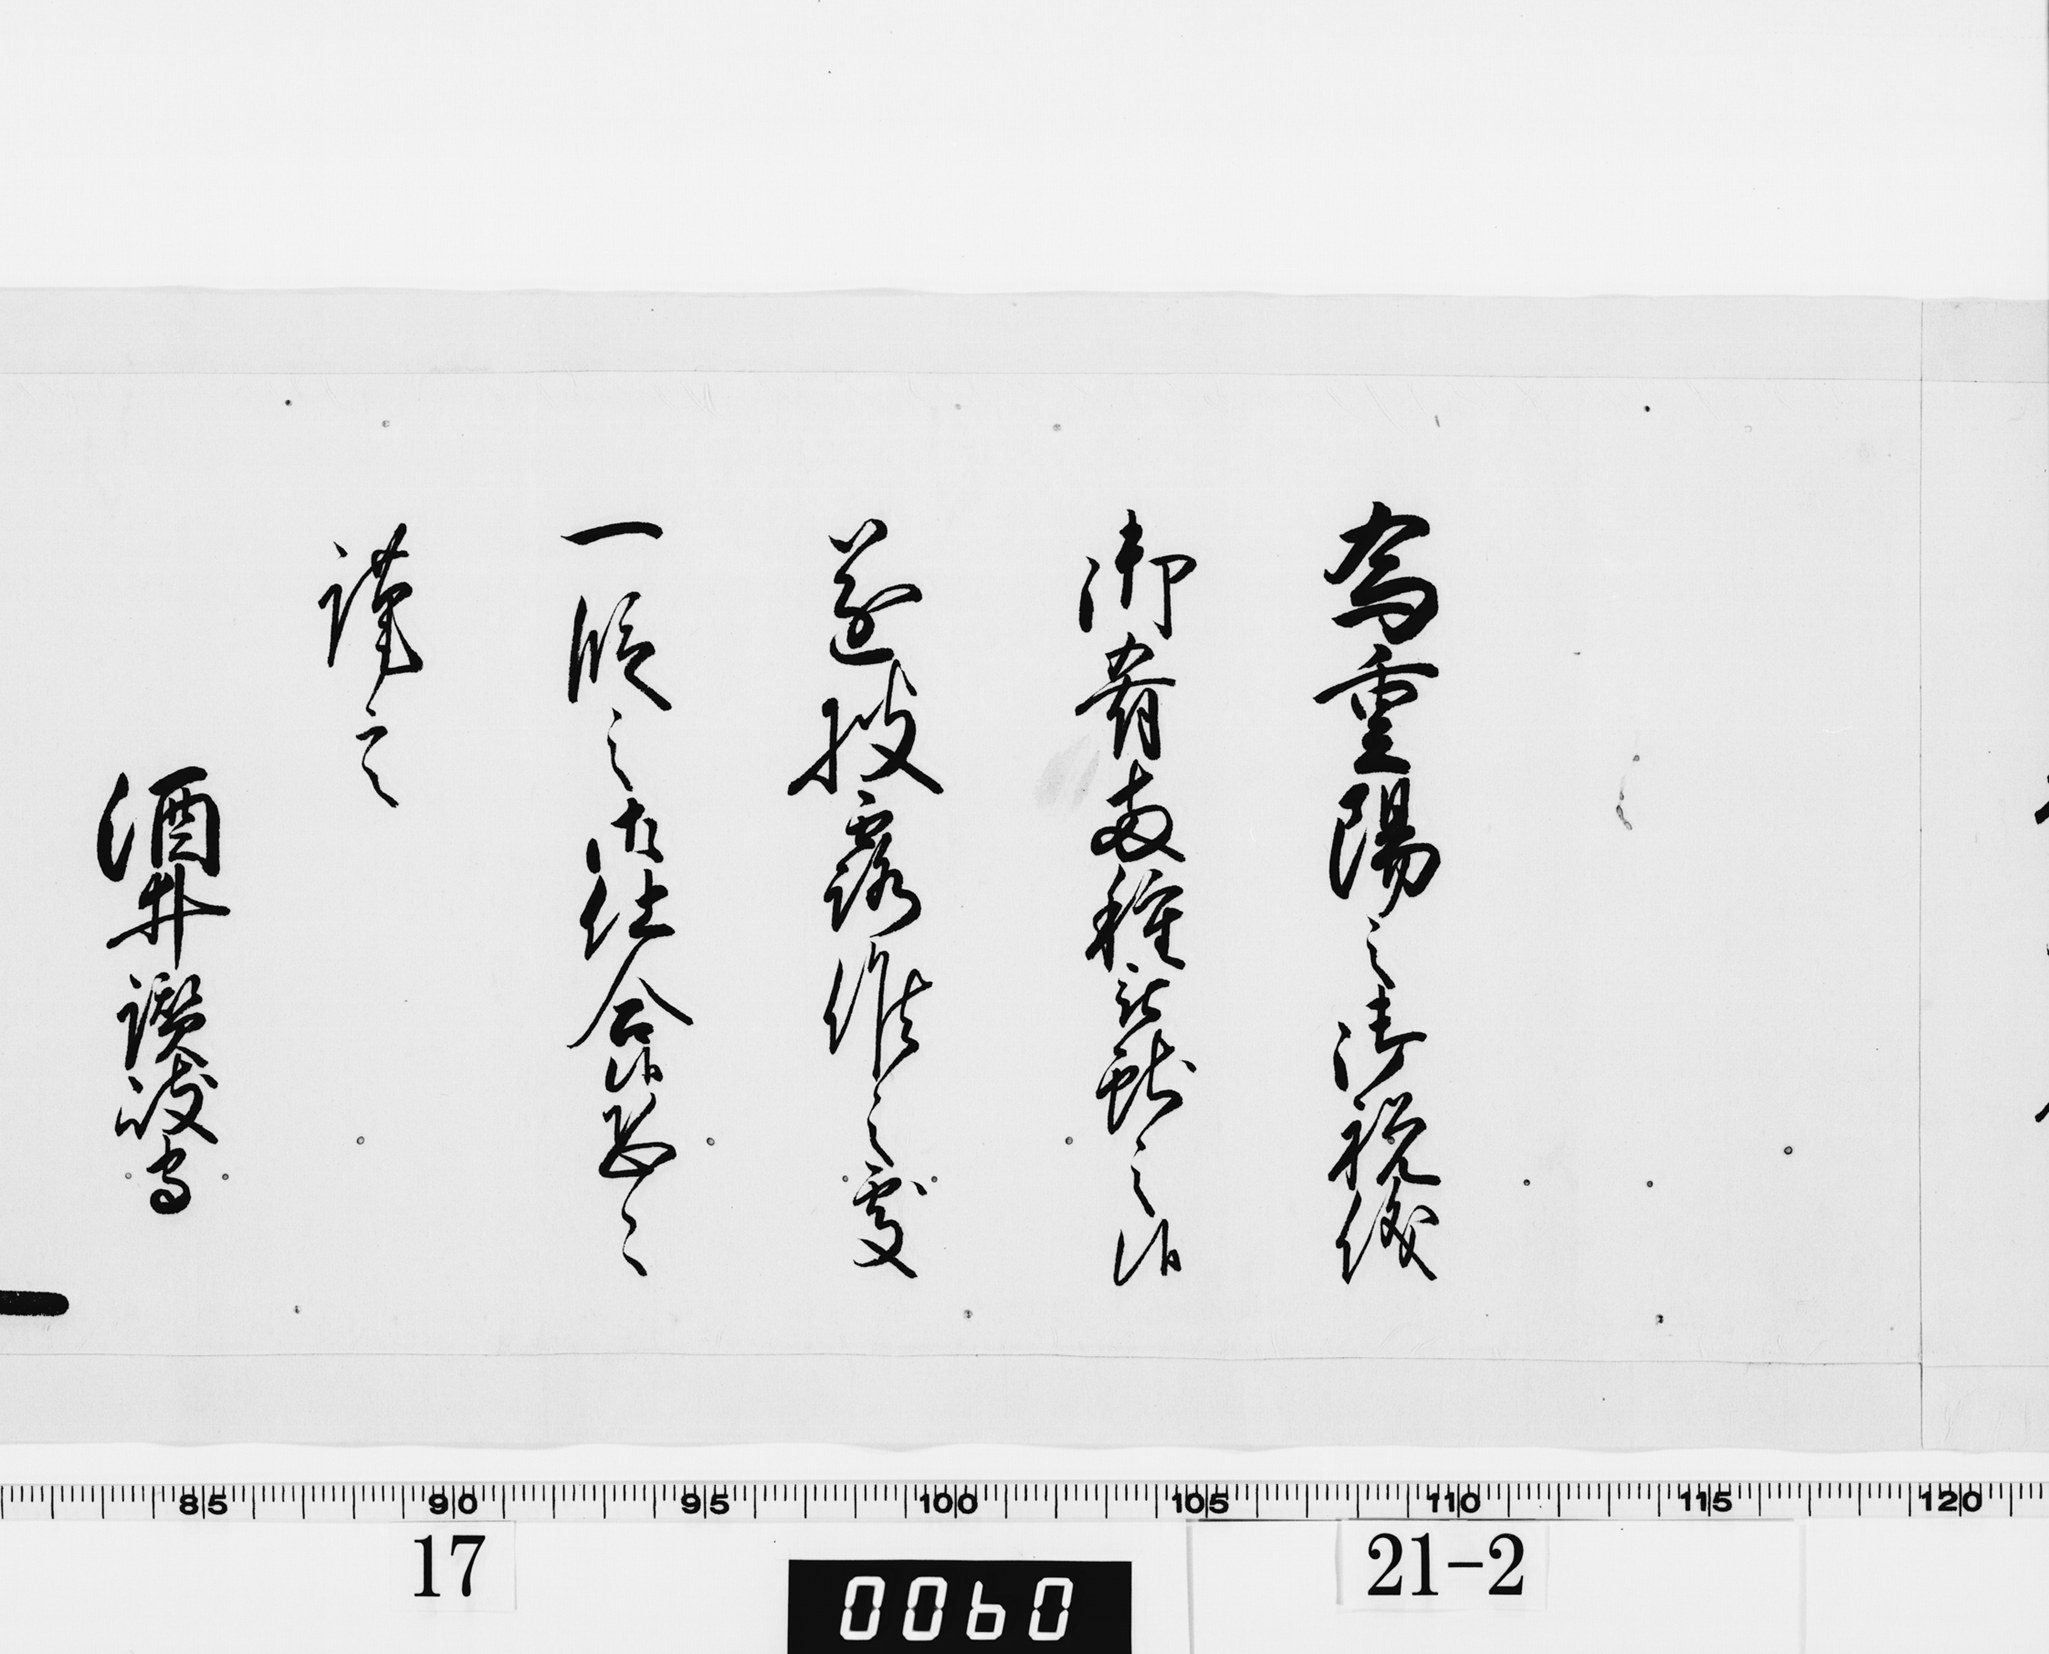 為重陽之御祝儀
御肴両種被献之候
遂披露候之處
一段之御仕合候恐々
謹言
酒井讃岐守
85 90 95 100 105 110 115 120
17
0060
21-2